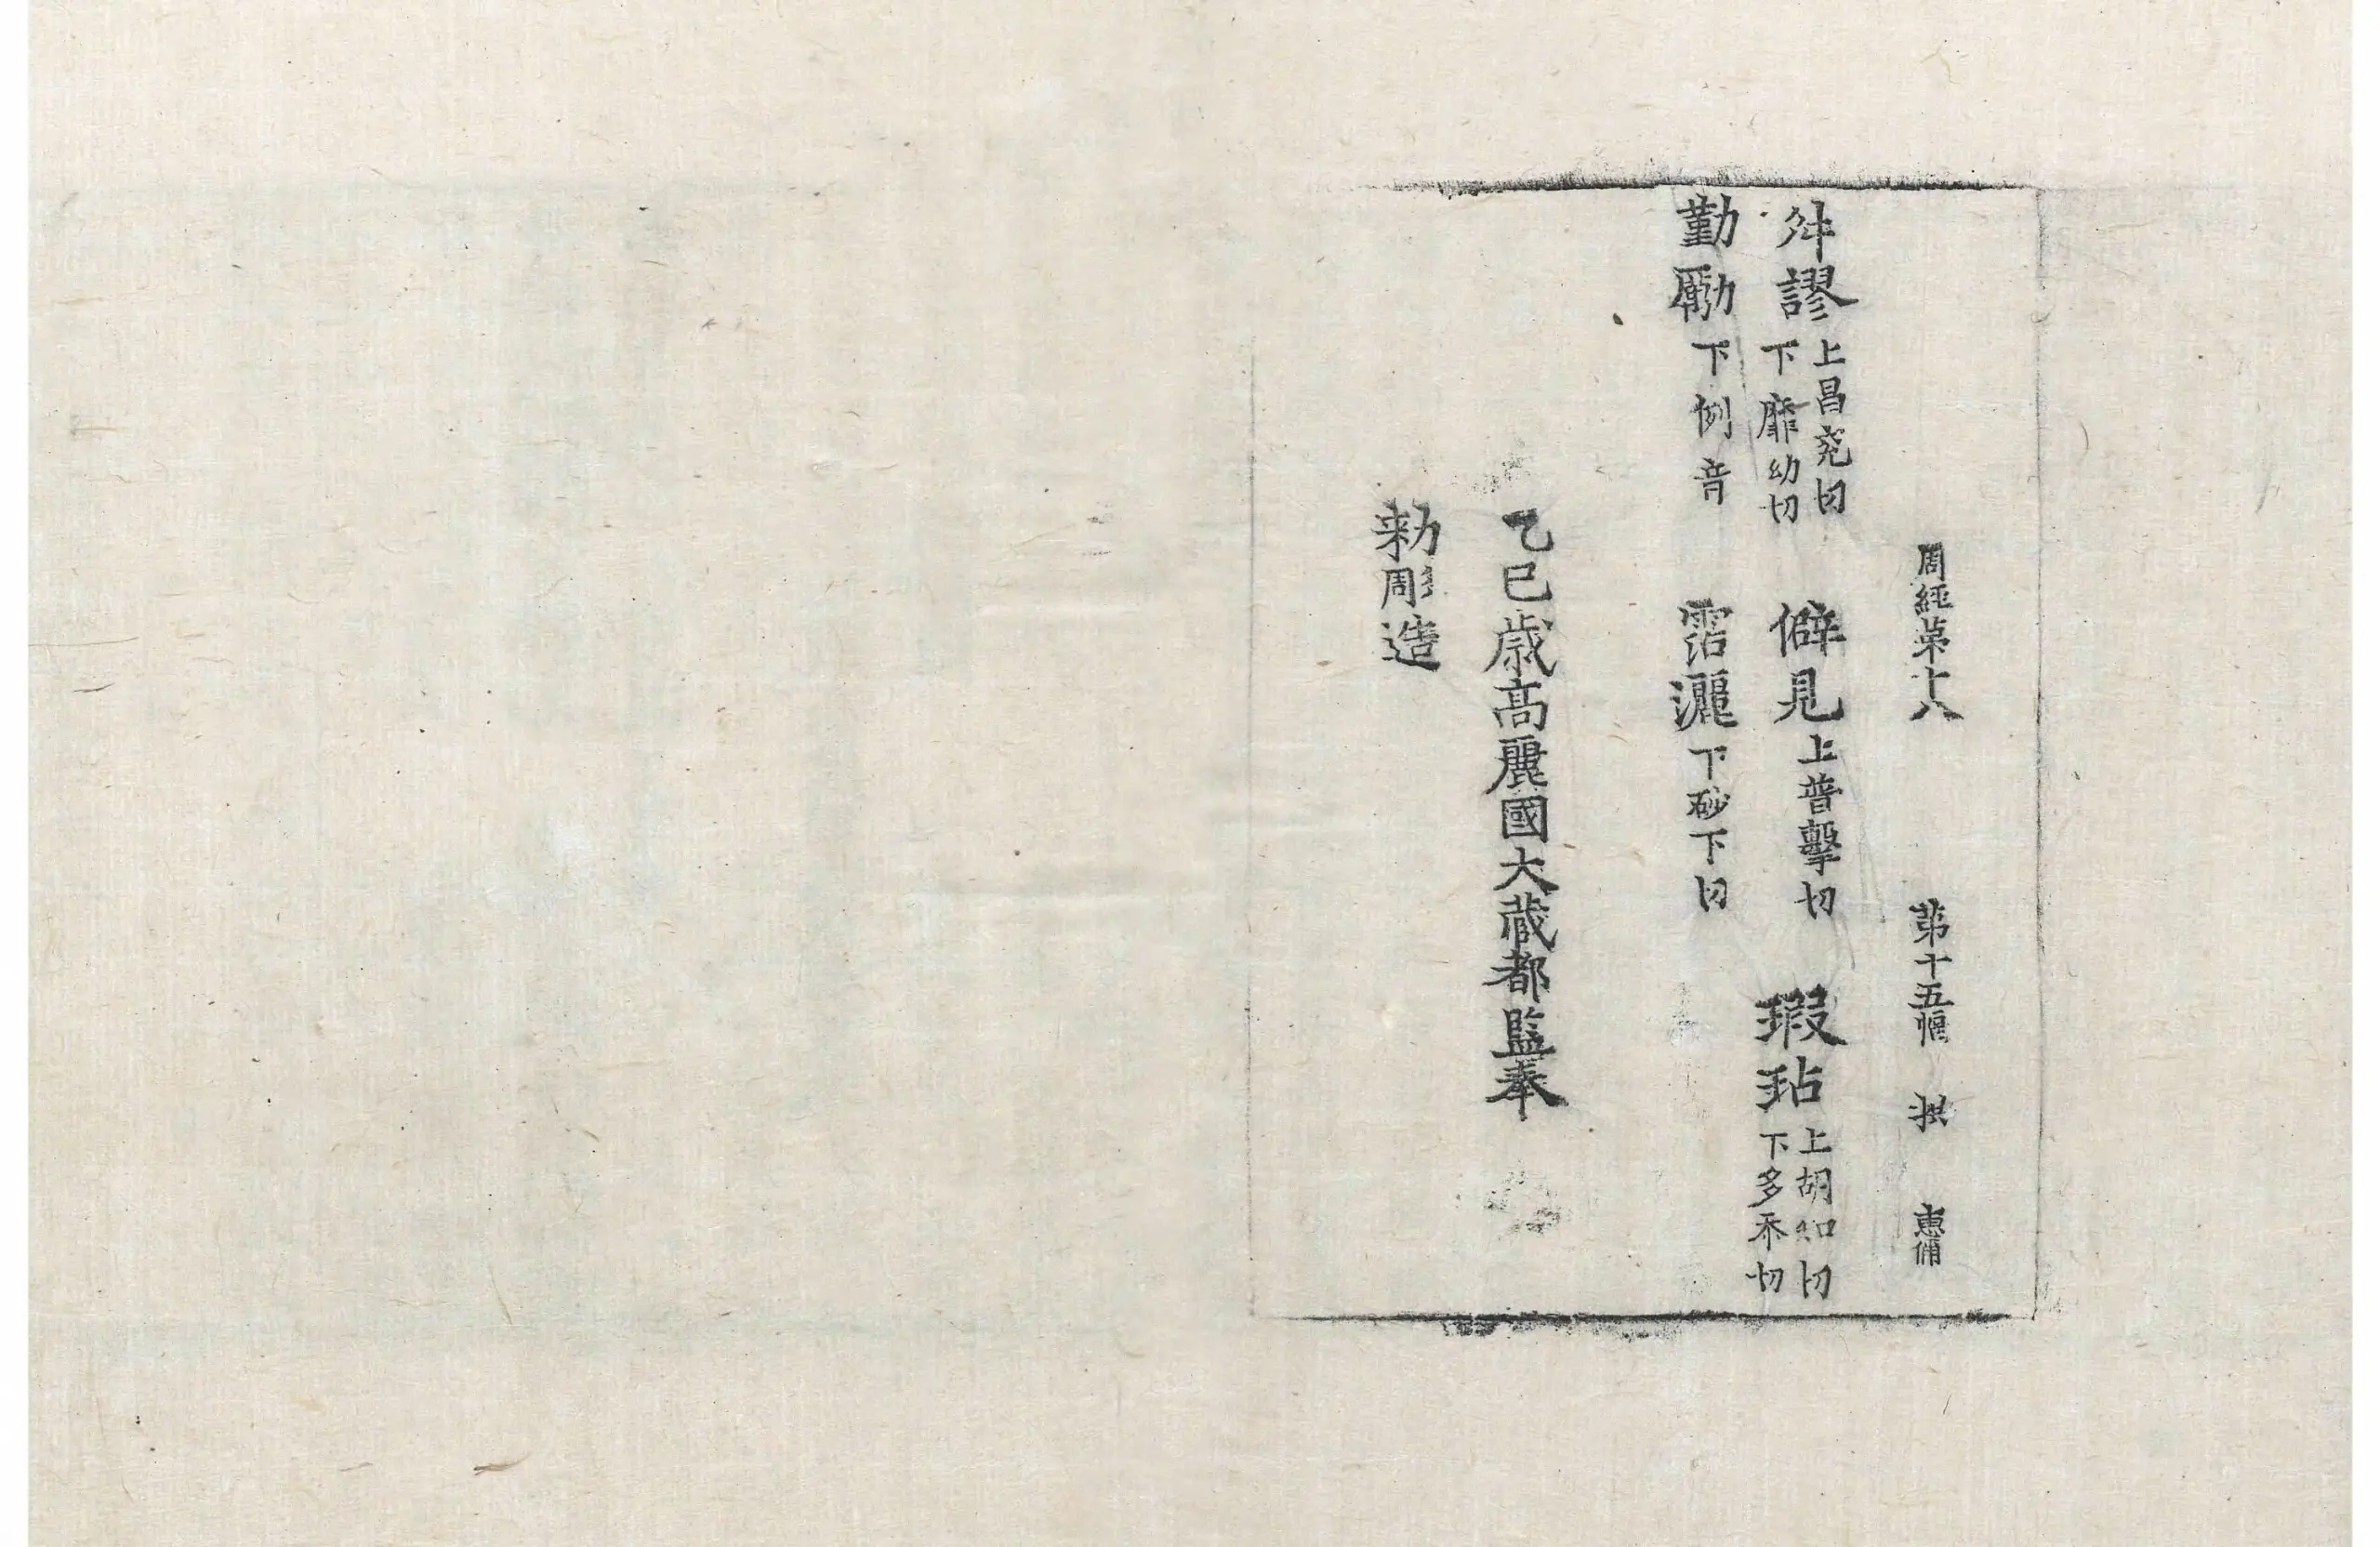 周經第十八 第十五幅 拱 惠甫
舛謬上昌兖切下靡幼切 僻見上普擊切 瑕玷上胡加切下多忝切
勤勵下例音 霑灑下砂下切
乙巳歲高麗國大藏都監奉
勑彫造